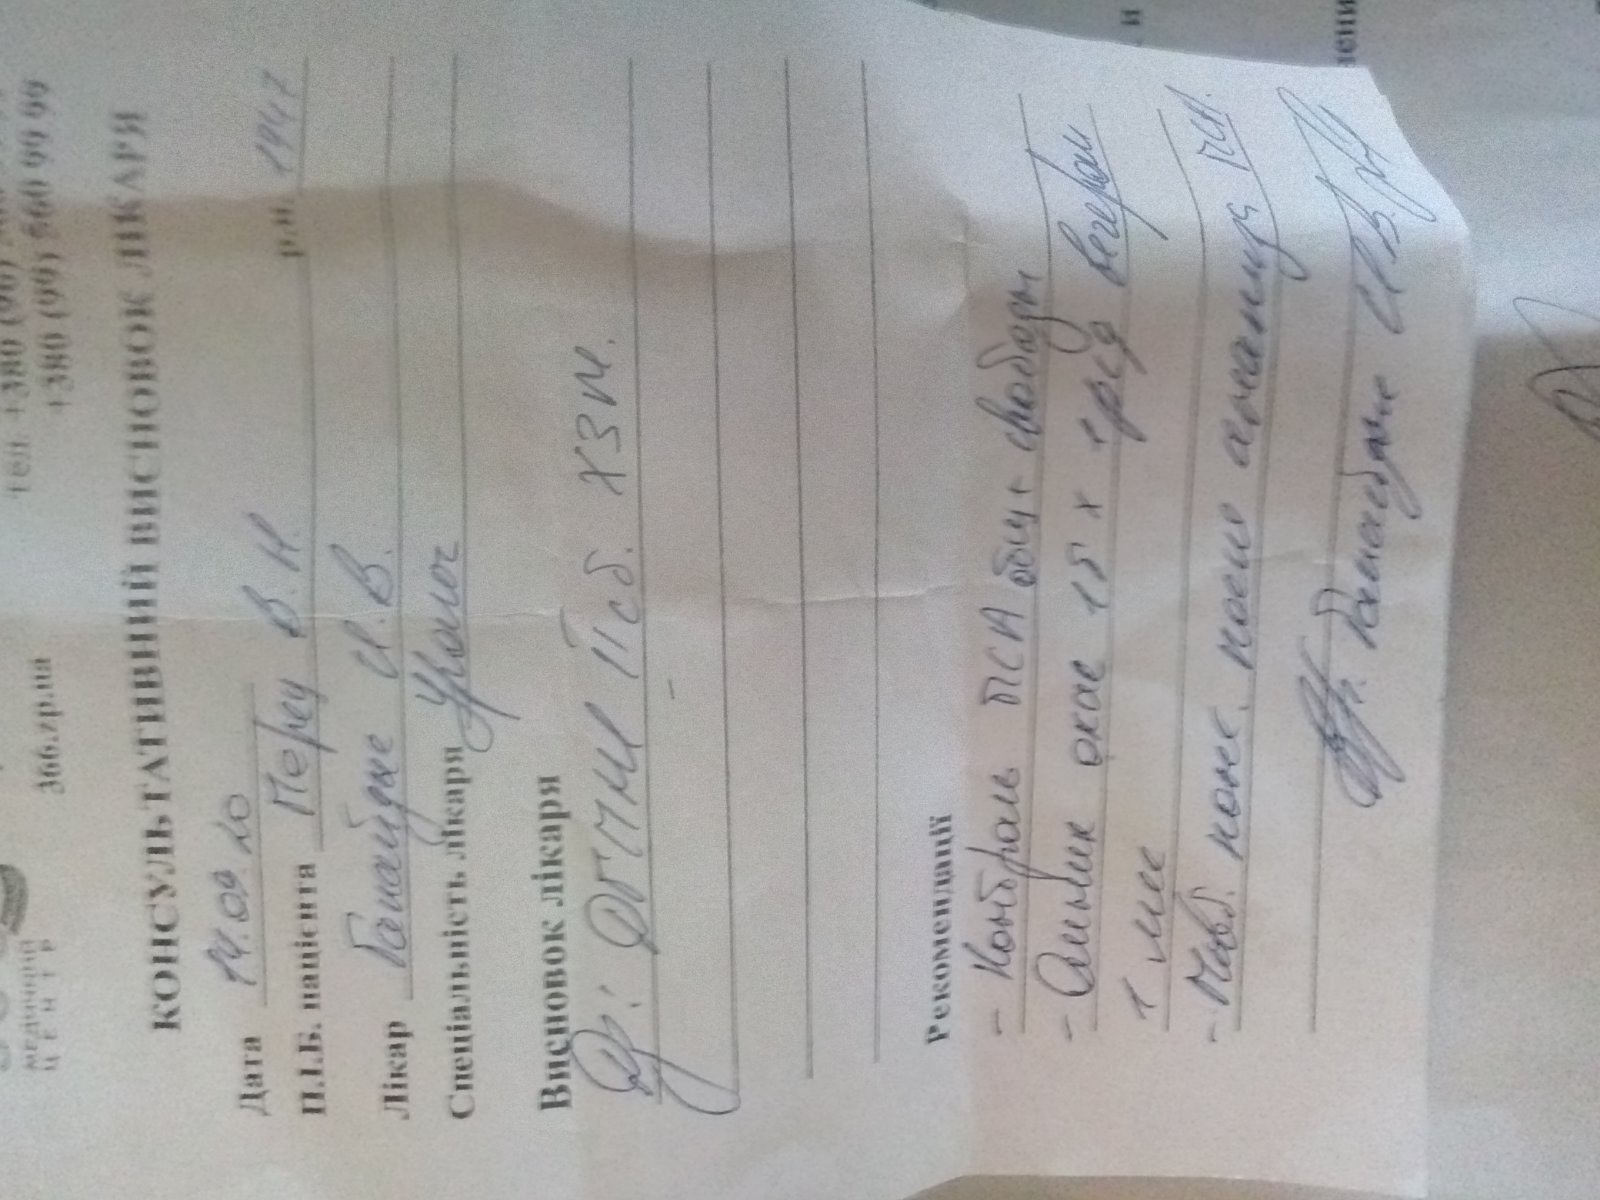 тел. +380
+380 (99) 560 99 99
МЕДИЧНИЙ
ЦЕНТР
366.zp.ua
КОНСУЛЬТАТИВНИЙ ВИСНОВОК ЛІКАРЯ
Дата 14.09.20
П.І.Б. пацієнта Перец В. Н. р.н. 1947
Лікар И. В.
Спеціальність лікаря Уролог
Висновок лікаря
Ds: ДГПЖ II ст. ХЗМ.
Рекомендації
- Контроль ПСА общ + свободн
- Омник окас 1т х 1 р/д вечером
1 мес
- Повт. конс. после анализа ПСА.
И. В.